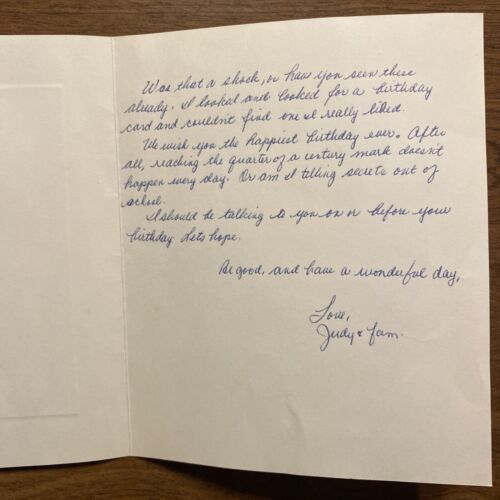 Was that a shock, or have you seen these
already. I looked and looked for a birthday
card and couldn't find one I really liked.
We wish you the happiest birthday ever. After
all, reaching the quarter of a century mark doesn't
happen every day. Or am I telling secrets out of
school.
I should be talking to you on or before your
birthday. Lets hope.
Be good, and have a wonderful day,
Love,
Judy & Fam.